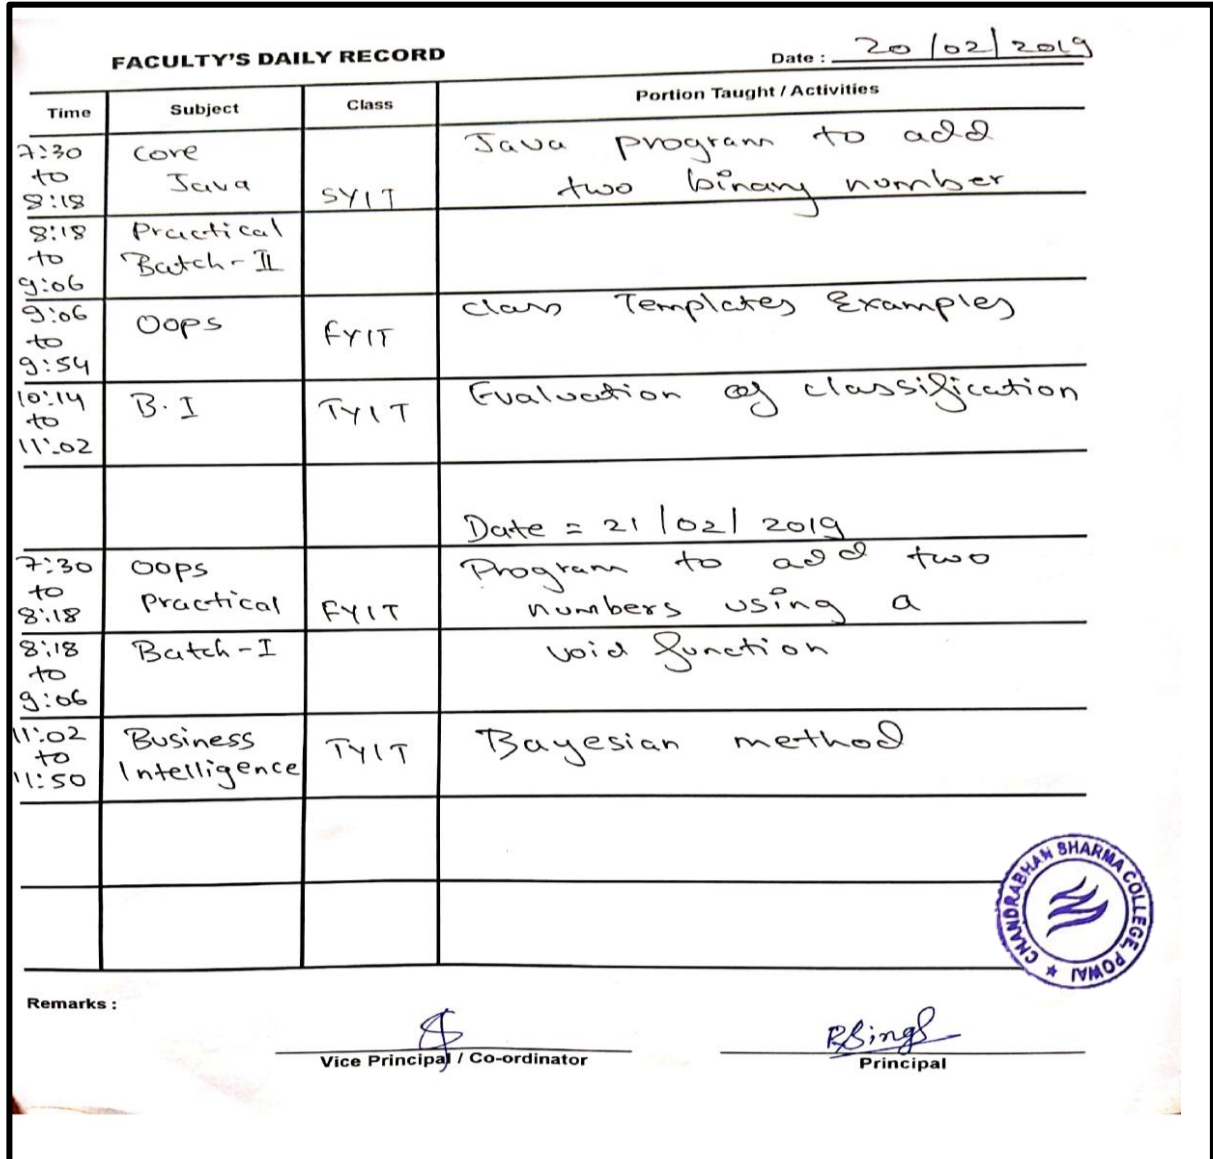 FACULTY'S DAILY RECORD
Date : 20/02/2019
Time Subject Class Portion Taught / Activities
7:30 to 8:18 Core Java SYIT Java program to add two binary number
8:18 to 9:06 Practical Batch-II
9:06 to 9:54 Oops FYIT Class Templates Examples
10:14 to 11:02 B.I TYIT Evaluation of classification
Date = 21/02/2019
7:30 to 8:18 Oops Practical FYIT Program to add two numbers using a
8:18 to 9:06 Batch-I void function
11:02 to 11:50 Business Intelligence TYIT Bayesian method
CHANDRABHAN SHARMA COLLEGE, POWAI
Remarks :
RSingh
Vice Principal / Co-ordinator
Principal